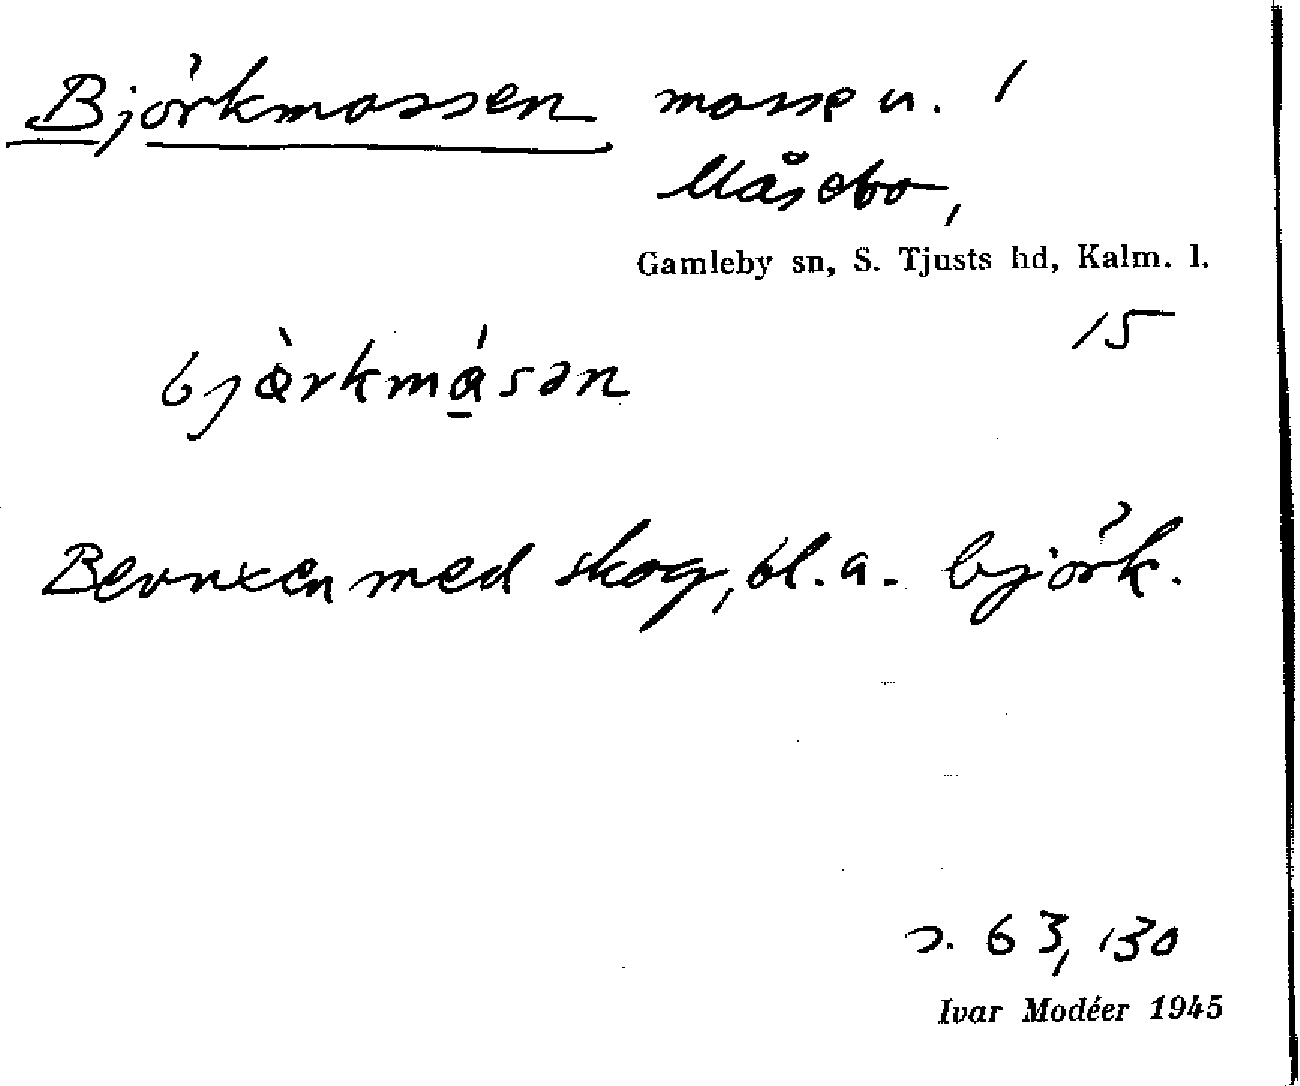 Björkmossen mosse u. /
Måsebo,
Gamleby sn, S. Tjusts hd, Kalm. l.
15
bjàrkmásən
Bevuxen med skog, bl. a. björk.
s. 63, 130
Ivar Modéer 1945